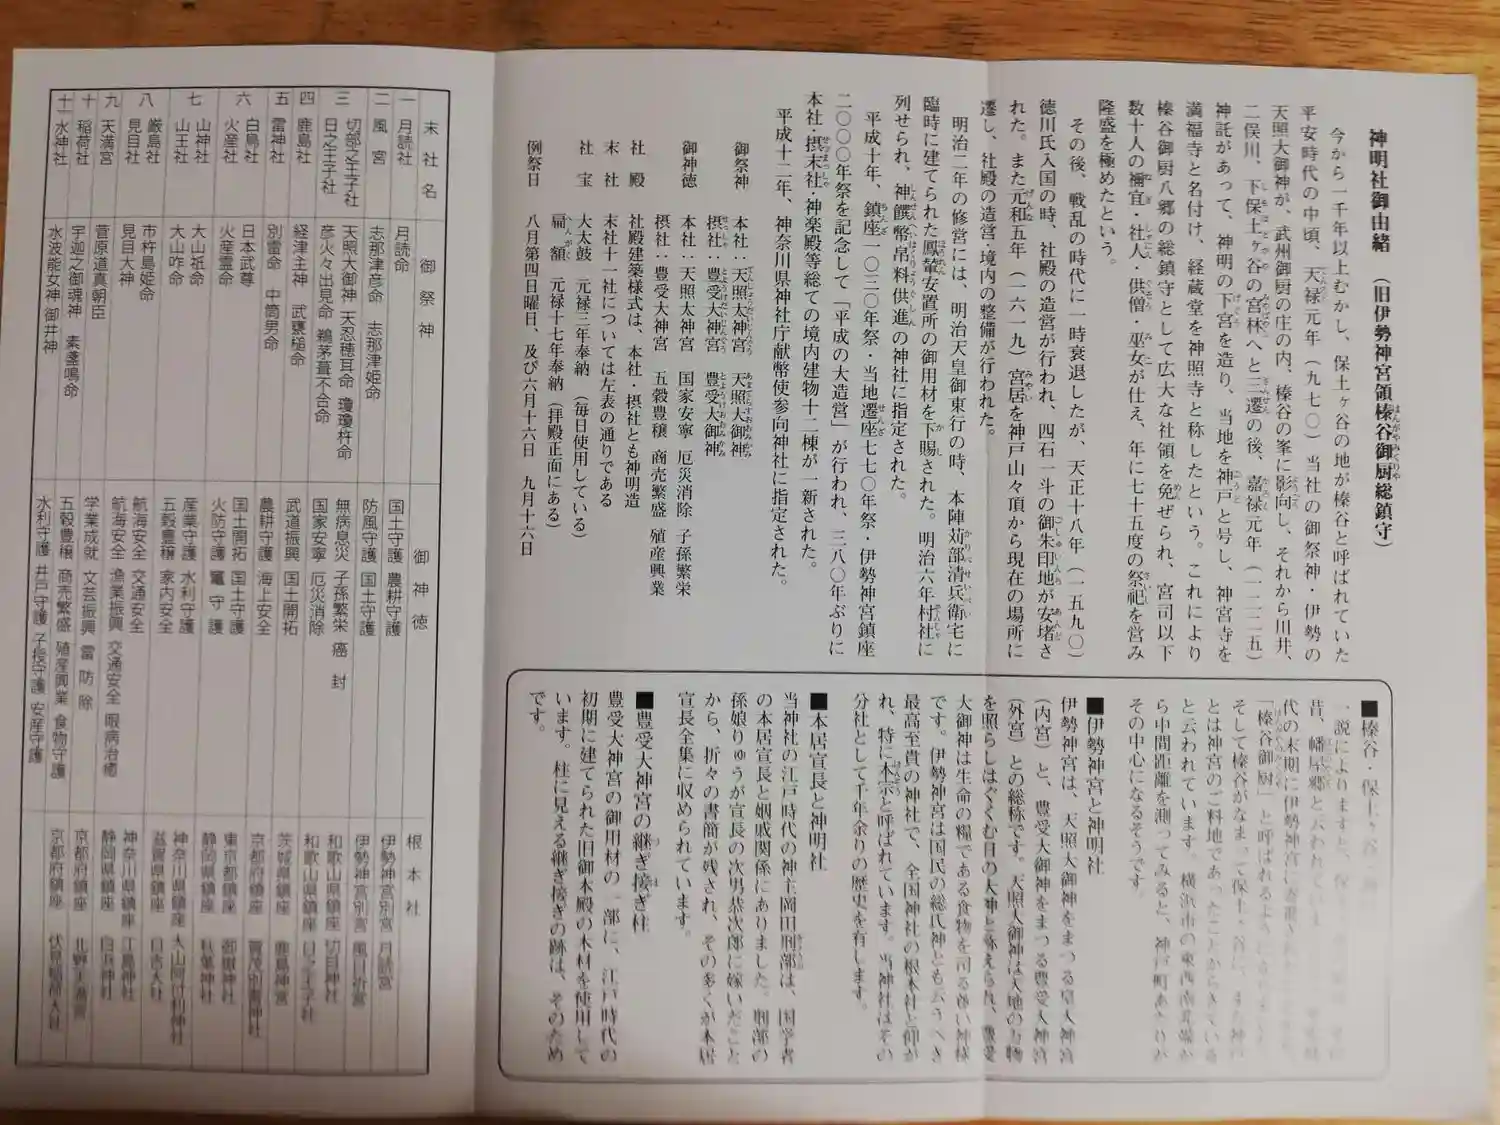 神明社御由緒 (旧伊勢神宮領榛谷御厨総鎮守)
今から一千年以上むかし、保土ヶ谷の地が榛谷と呼ばれていた
平安時代の中頃、天禄元年(九七〇)当社の御祭神・伊勢の
天照大御神が、武州御厨の庄の内、榛谷の峯に影向し、それから川井、
二俣川、下保土ヶ谷の宮林へと三遷の後、嘉禄元年(一二二五)
神託があって、神明の下宮を造り、当地を神戸と号し、神宮寺を
満福寺と名付け、経蔵堂を神照寺と称したという。これにより
榛谷御厨八郷の総鎮守として広大な社領を免ぜられ、宮司以下
数十人の禰宜・社人・供僧・巫女が仕え、年に七十五度の祭祀を営み
隆盛を極めたという。
その後、戦乱の時代に一時衰退したが、天正十八年(一五九〇)
徳川氏入国の時、社殿の造営が行われ、四石一斗の御朱印地が安堵さ
れた。また元和五年(一六一九)宮居を神戸山々頂から現在の場所に
遷し、社殿の造営・境内の整備が行われた。
明治二年の修営には、明治天皇御東行の時、本陣苅部清兵衛宅に
臨時に建てられた鳳輦安置所の御用材を下賜された。明治六年村社に
列せられ、神饌幣帛料供進の神社に指定された。
平成十年、鎮座一〇三〇年祭・当地遷座七七〇年祭・伊勢神宮鎮座
二〇〇〇年祭を記念して「平成の大造営」が行われ、三八〇年ぶりに
本社・摂末社・神楽殿等総ての境内建物十二棟が一新された。
平成十二年、神奈川県神社庁献幣使参向神社に指定された。
御祭神 本社:天照太神宮 天照大御神
摂社:豊受大神宮 豊受大御神
御神徳 本社:天照太神宮 国家安寧 厄災消除 子孫繁栄
摂社:豊受大神宮 五穀豊穣 商売繁盛 殖産興業
社殿 社殿建築様式は、本社・摂社とも神明造
末社 末社十一社については左表の通りである
社宝 大太鼓 元禄三年奉納(毎日使用している)
扁額 元禄十七年奉納(拝殿正面にある)
例祭日 八月第四日曜日、及び六月十六日 九月十六日
■榛谷・保土ヶ谷
一説によりますと、保
昔、幡屋郷と云われてい
代の末期に伊勢神宮に
「榛谷御厨」と呼ばれるよ
そして榛谷がなまって保土ヶ谷に、また神戸
とは神宮のご料地であったことからきている
と云われています。横浜市の東西南北端か
ら中間距離を測ってみると、神戸町あたりが
その中心になるそうです。
■伊勢神宮と神明社
伊勢神宮は、天照大御神をまつる皇大神宮
(内宮)と、豊受大御神をまつる豊受大神宮
(外宮)との総称です。天照大御神は天地の万物
を照らしはぐくむ日の大神と称えられ、豊受
大御神は生命の糧である食物を司る尊い神様
です。伊勢神宮は国民の総氏神とも云うべき
最高至貴の神社で、全国神社の根本社と仰が
れ、特に本宗と呼ばれています。当神社はその
分社として千年余りの歴史を有します。
■本居宣長と神明社
当神社の江戸時代の神主岡田刑部は、国学者
の本居宣長と姻戚関係にありました。刑部の
孫娘りゅうが宣長の次男恭次郎に嫁いだこと
から、折々の書簡が残され、その多くが本居
宣長全集に収められています。
■豊受大神宮の継ぎ接ぎ柱
豊受大神宮の御用材の一部に、江戸時代の
初期に建てられた旧御本殿の木材を使用して
います。柱に見える継ぎ接ぎの跡は、そのため
です。
末社名 御祭神 御神徳 根本社
一 月読社 月読命 国土守護 農耕守護 伊勢神宮別宮 月読宮
二 風宮 志那津彦命 志那津姫命 防風守護 国土守護 伊勢神宮別宮 風日祈宮
三 切部之王子社 天照大御神 天忍穂耳命 瓊瓊杵命 無病息災 子孫繁栄 癌封 和歌山県鎮座 切目神社
日之王子社 彦火々出見命 鵜茅葺不合命 国家安寧 厄災消除 和歌山県鎮座 日之王子社
四 鹿島社 経津主神 武甕槌命 武道振興 国土開拓 茨城県鎮座 鹿島神宮
五 雷神社 別雷命 中筒男命 農耕守護 海上安全 京都府鎮座 賀茂別雷神社
六 白鳥社 日本武尊 国土開拓 国土守護 東京都鎮座 御嶽神社
火産社 火産霊命 火防守護 竃守護 静岡県鎮座 秋葉神社
七 山神社 大山祇命 産業守護 水利守護 神奈川県鎮座 大山阿夫利神社
山王社 大山咋命 五穀豊穣 家内安全 滋賀県鎮座 日吉大社
八 厳島社 市杵島姫命 航海安全 交通安全 神奈川県鎮座 江島神社
見目社 見目大神 航海安全 漁業振興 交通安全 眼病治癒 静岡県鎮座 白浜神社
九 天満宮 菅原道真朝臣 学業成就 文芸振興 雷防除 京都府鎮座 北野天満宮
十 稲荷社 宇迦之御魂神 素盞鳴命 五穀豊穣 商売繁盛 殖産興業 食物守護 京都府鎮座 伏見稲荷大社
十一 水神社 水波能女神 御井神 水利守護 井戸守護 子授守護 安産守護